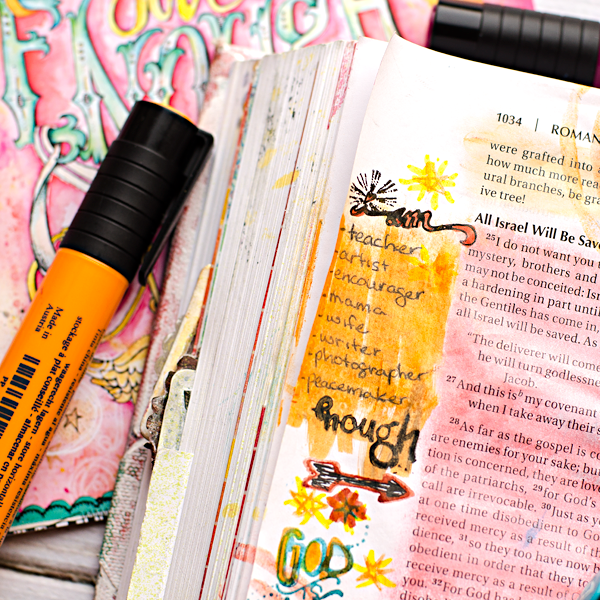 1034 | ROMAN
were grafted into
how much more rea
ural branches, be gra
ive tree!
All Israel Will Be Save
25 I do not want you
mystery, brothers and
may not be conceited: Isr
a hardening in part until
the Gentiles has come in,
all Israel will be saved. As
"The deliverer will come
he will turn godlessne
Jacob.
27 And this is my covenant
when I take away their s
28 As far as the gospel is co
are enemies for your sake; but
tion is concerned, they are love
of the patriarchs, 29 for God's
call are irrevocable. 30 Just as y
at one time disobedient to Go
received mercy as a result of th
dience, 31 so they too have now
obedient in order that they to
receive mercy as a result of
you. 32 For God has
am
- teacher
- artist
- encourager
- mama
- wife
- writer
- photographer
- peacemaker
Enough
GOD
IS
Made in
Austria
stockage à plat conseillé - almacenar en
waagerecht lagern - store horizontal
PP